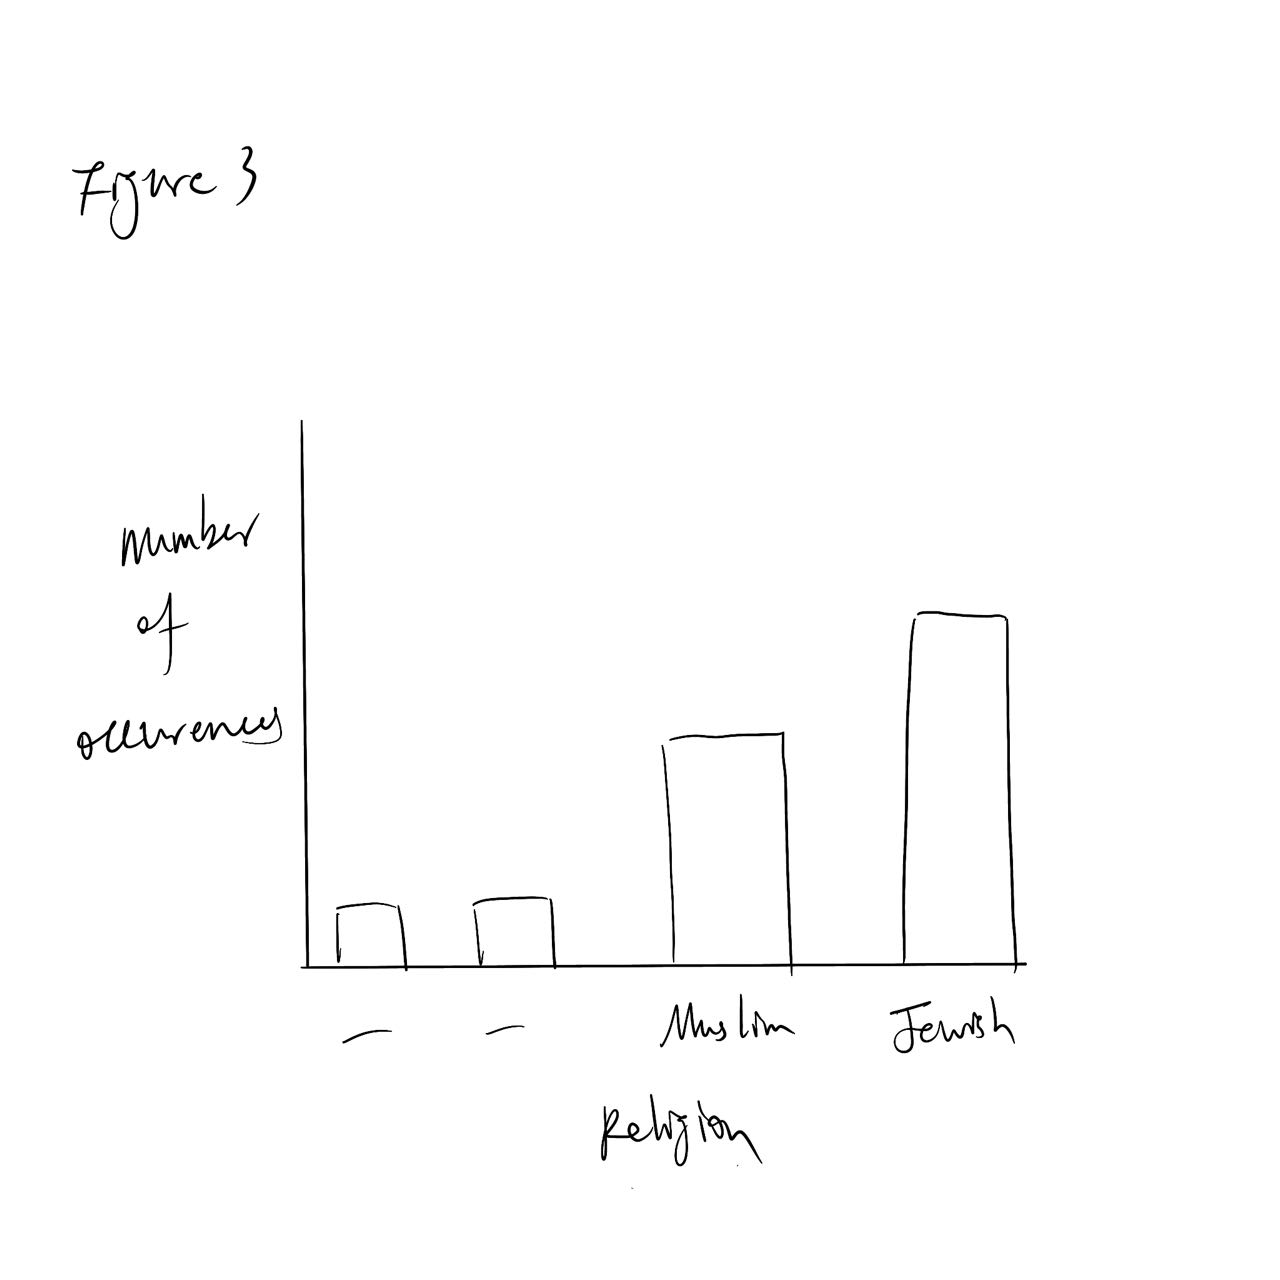 Figure 3
Number
of
occurences
— — Muslim Jewish
Religion